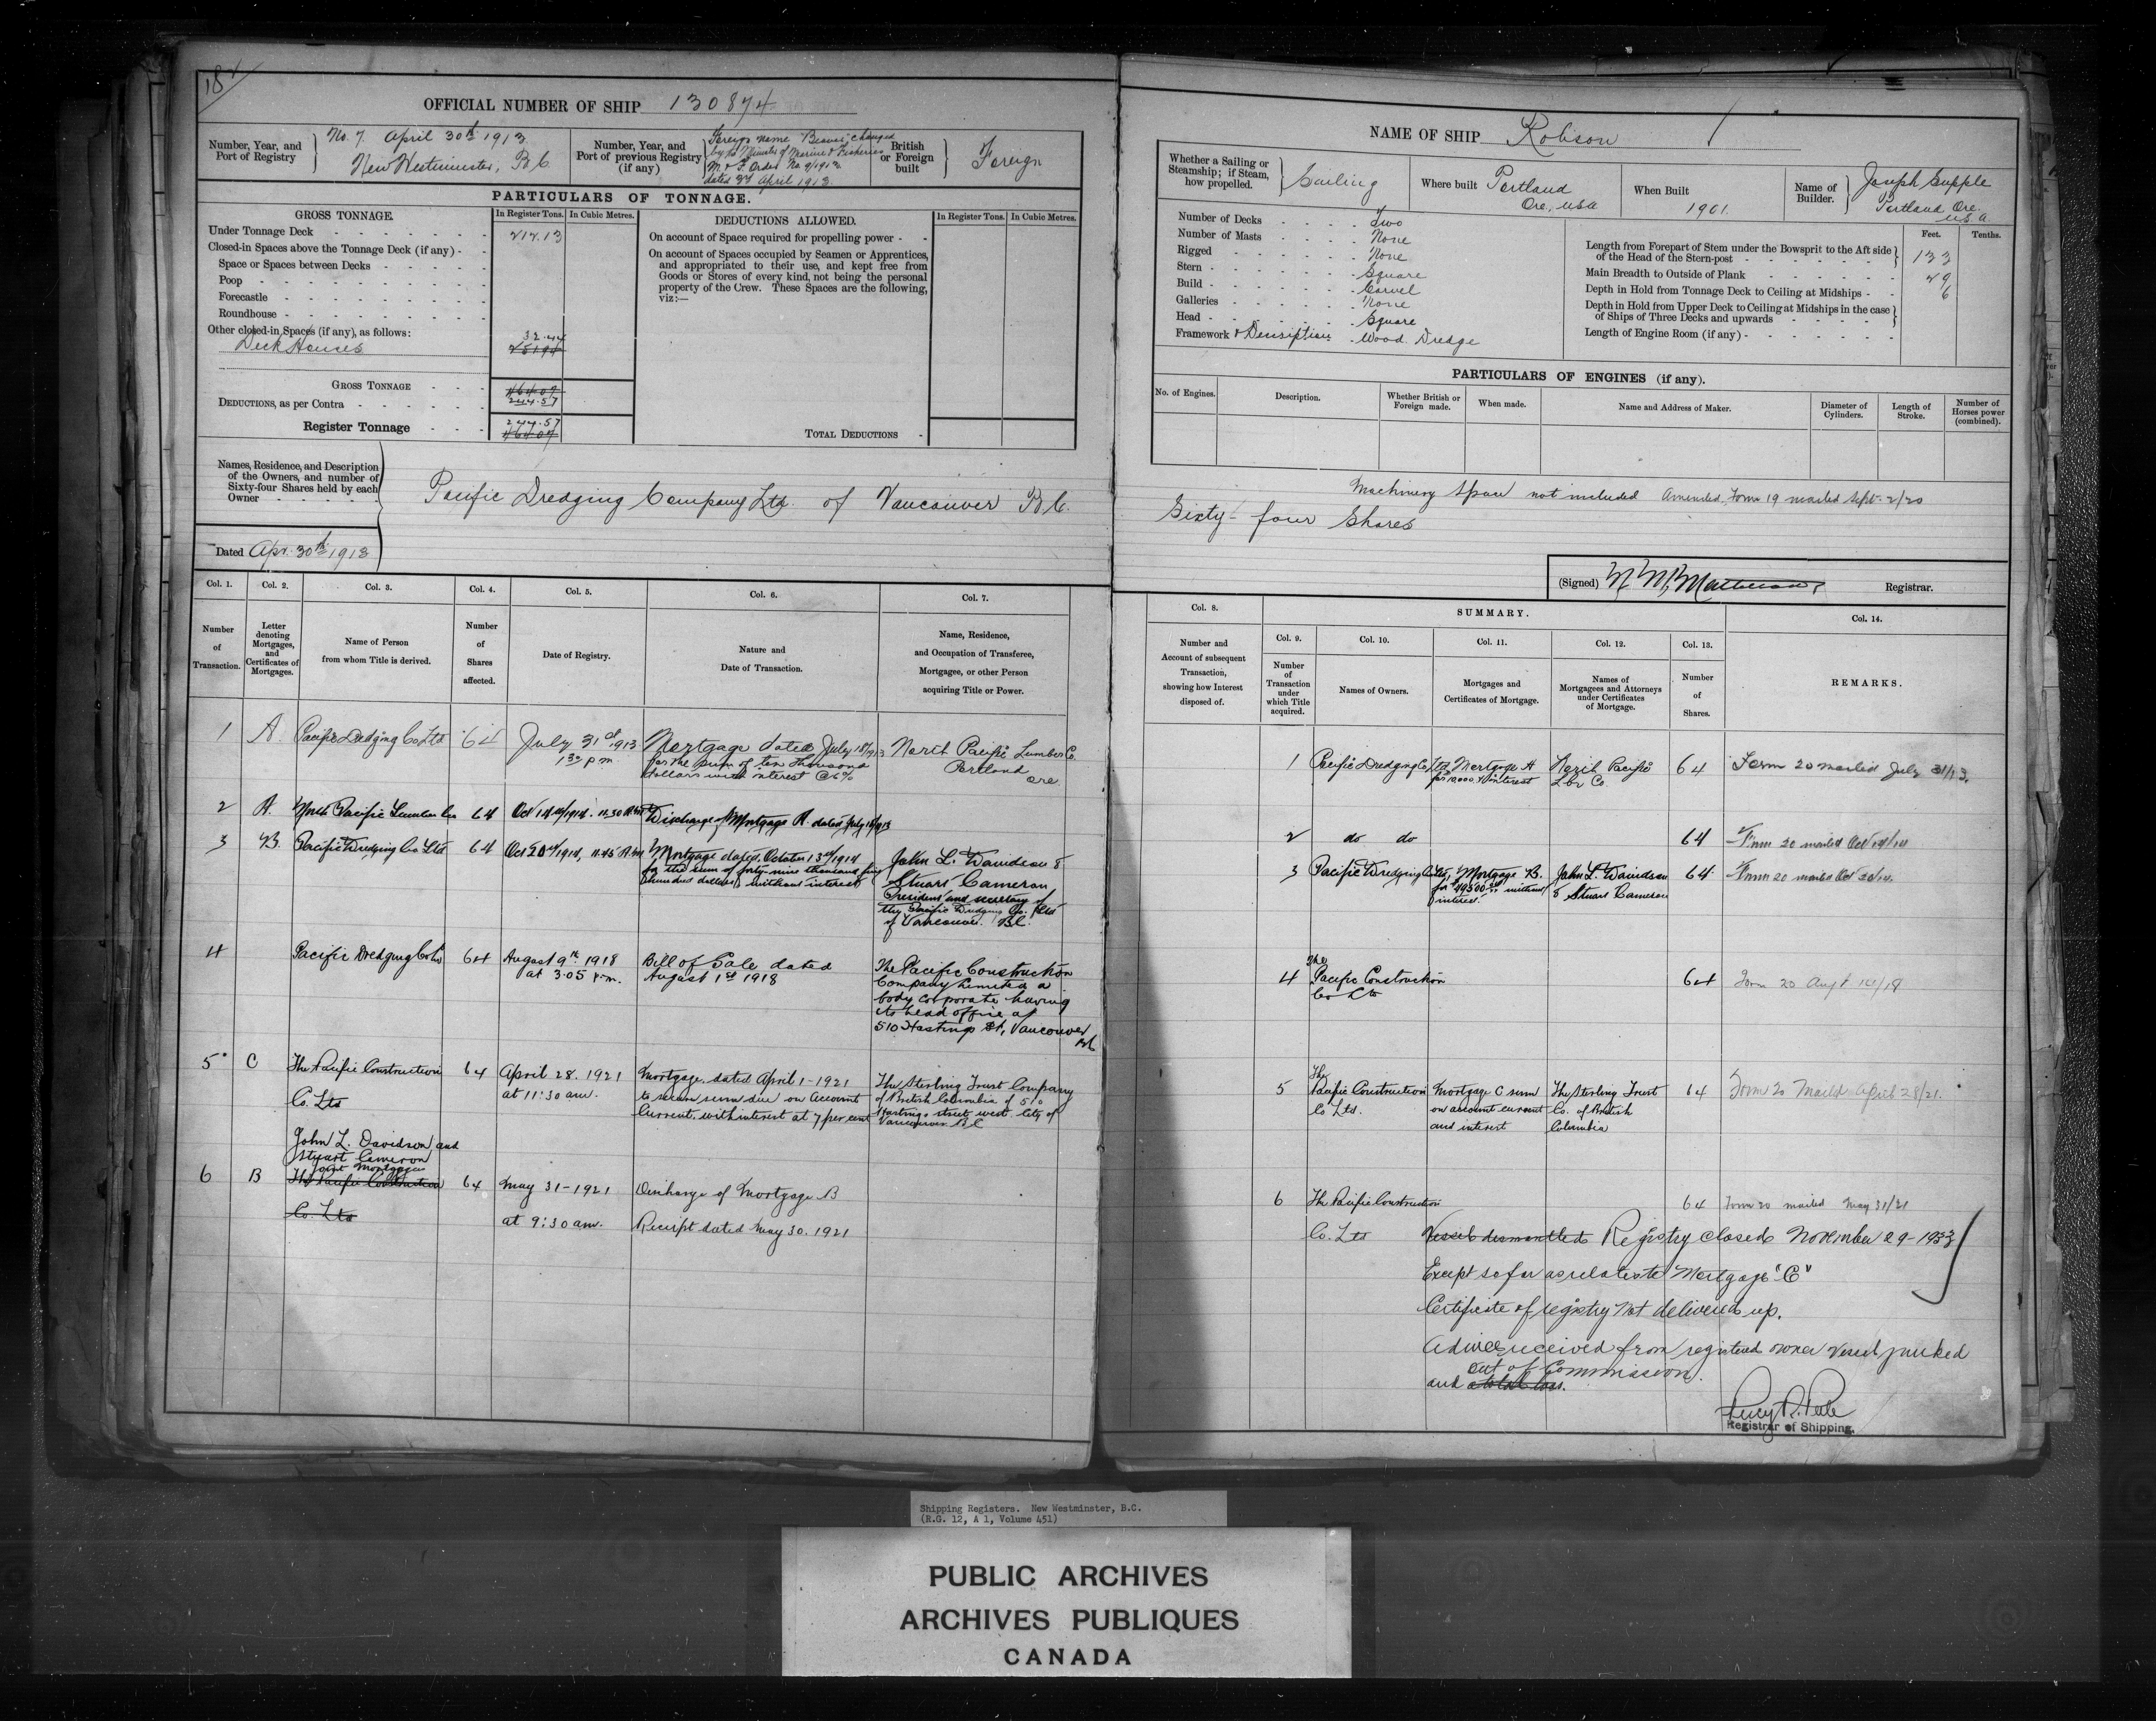 OFFICIAL NUMBER OF SHIP 130874
Number, Year, and Port of Registry
No. 7 April 30th 1913
New Westminster, B C
Number, Year, and Port of previous Registry (if any)
Foreign name "Beaver" changed
by the Minister of Marine & Fisheries
M. & F. Order No 9/1913
dated 3rd April 1913.
British or Foreign built
Foreign
PARTICULARS OF TONNAGE.
GROSS TONNAGE.
In Register Tons.
In Cubic Metres.
DEDUCTIONS ALLOWED.
In Register Tons.
In Cubic Metres.
Under Tonnage Deck 212.13
Closed-in Spaces above the Tonnage Deck (if any)
Space or Spaces between Decks
Poop
Forecastle
Roundhouse
Other closed-in Spaces (if any), as follows:
Deck Houses
32.44
251.94
GROSS TONNAGE
464.07
244.57
DEDUCTIONS, as per Contra
Register Tonnage
244.57
464.07
On account of Space required for propelling power
On account of Spaces occupied by Seamen or Apprentices,
and appropriated to their use, and kept free from
Goods or Stores of every kind, not being the personal
property of the Crew. These Spaces are the following,
viz:—
TOTAL DEDUCTIONS
Names, Residence, and Description
of the Owners, and number of
Sixty-four Shares held by each
Owner
Pacific Dredging Company Ltd. of Vancouver B.C.
Dated Apr. 30th 1913
Col. 1.
Col. 2.
Col. 3.
Col. 4.
Col. 5.
Col. 6.
Col. 7.
Number of Transaction.
Letter denoting Mortgages, and Certificates of Mortgages.
Name of Person from whom Title is derived.
Number of Shares affected.
Date of Registry.
Nature and Date of Transaction.
Name, Residence, and Occupation of Transferee, Mortgagee, or other Person acquiring Title or Power.
1 A. Pacific Dredging Co Ltd 64 July 31st 1913 Mortgage dated July 18/1913 North Pacific Lumber Co.
1 30 p m for the sum of ten thousand Portland
dollars with interest @ 6% Ore.
2 A. North Pacific Lumber Co 64 Oct 14th/1914. 11.30 A.M. Discharge of Mortgage A. dated July 18/1913
3 B. Pacific Dredging Co Ltd 64 Oct 20th/1914, 11.45 A.M. Mortgage dated October 13th/1914 John L. Davidson &
for the sum of forty-nine thousand five Stuart Cameron
hundred dollars, without interest President and secretary of
the Pacific Dredging Co. Ltd
of Vancouver. BC.
4 Pacific Dredging Co Ltd 64 August 9th 1918 Bill of Sale dated The Pacific Construction
at 3.05 p.m. August 1st 1918 Company Limited a
body corporate having
its head office at
510 Hastings St, Vancouver
BC
5 C The Pacific Construction 64 April 28. 1921 Mortgage dated April 1-1921 The Sterling Trust Company
Co. Ltd at 11:30 am. to secure sum due on account of British Columbia of 510
Current, with interest at 7 per cent Hastings street west City of
Vancouver BC
John L. Davidson and
Stuart Cameron
joint Mortgagees
6 B The Pacific Construction 64 May 31-1921 Discharge of Mortgage B
Co. Ltd at 9:30 am. Receipt dated May 30. 1921
NAME OF SHIP Robson
Whether a Sailing or Steamship; if Steam, how propelled.
Sailing
Where built Portland
Ore, USA
When Built 1901
Name of Builder.
Joseph Supple
Portland Ore.
U.S.A.
Number of Decks Two
Number of Masts None
Rigged None
Stern Square
Build Carvel
Galleries None
Head Square
Framework & Description Wood. Dredge
Feet.
Tenths.
Length from Forepart of Stem under the Bowsprit to the Aft side of the Head of the Stern-post 133
Main Breadth to Outside of Plank 49
Depth in Hold from Tonnage Deck to Ceiling at Midships 6
Depth in Hold from Upper Deck to Ceiling at Midships in the case of Ships of Three Decks and upwards
Length of Engine Room (if any)
PARTICULARS OF ENGINES (if any).
No. of Engines.
Description.
Whether British or Foreign made.
When made.
Name and Address of Maker.
Diameter of Cylinders.
Length of Stroke.
Number of Horses power (combined).
Machinery space not included Amended Form 19 mailed Sept. 2/20
Sixty-four Shares
(Signed) Registrar.
Col. 8.
SUMMARY.
Col. 9.
Col. 10.
Col. 11.
Col. 12.
Col. 13.
Col. 14.
Number and Account of subsequent Transaction, showing how Interest disposed of.
Number of Transaction under which Title acquired.
Names of Owners.
Mortgages and Certificates of Mortgage.
Names of Mortgagees and Attorneys under Certificates of Mortgage.
Number of Shares.
REMARKS.
1 Pacific Dredging Co Ltd. Mortgage A North Pacific 64 Form 20 mailed July 31/13.
for 10,000 & interest Lbr Co.
2 do do 64 Form 20 mailed Oct 14/14
3 Pacific Dredging Co Ltd, Mortgage B. John L. Davidson 64 Form 20 mailed Oct 20/14.
for $49500.00 without & Stuart Cameron
interest.
The
4 Pacific Construction 64 Form 20 Augt 14/18
Co Ltd
The
5 Pacific Construction Mortgage C sum The Sterling Trust 64 Form 20 Mailed April 28/21.
Co Ltd. on account current Co. of British
and interest Columbia
6 The Pacific Construction 64 Form 20 mailed May 31/21
Co. Ltd Vessel dismantled Registry closed November 29-1933
Except so far as relates to Mortgage "C"
Certificate of registry not delivered up.
Advice received from registered owner vessel junked
out of Commission.
and a total loss.
Registrar of Shipping.
Shipping Registers. New Westminster, B.C.
(R.G. 12, A 1, Volume 451)
PUBLIC ARCHIVES
ARCHIVES PUBLIQUES
CANADA